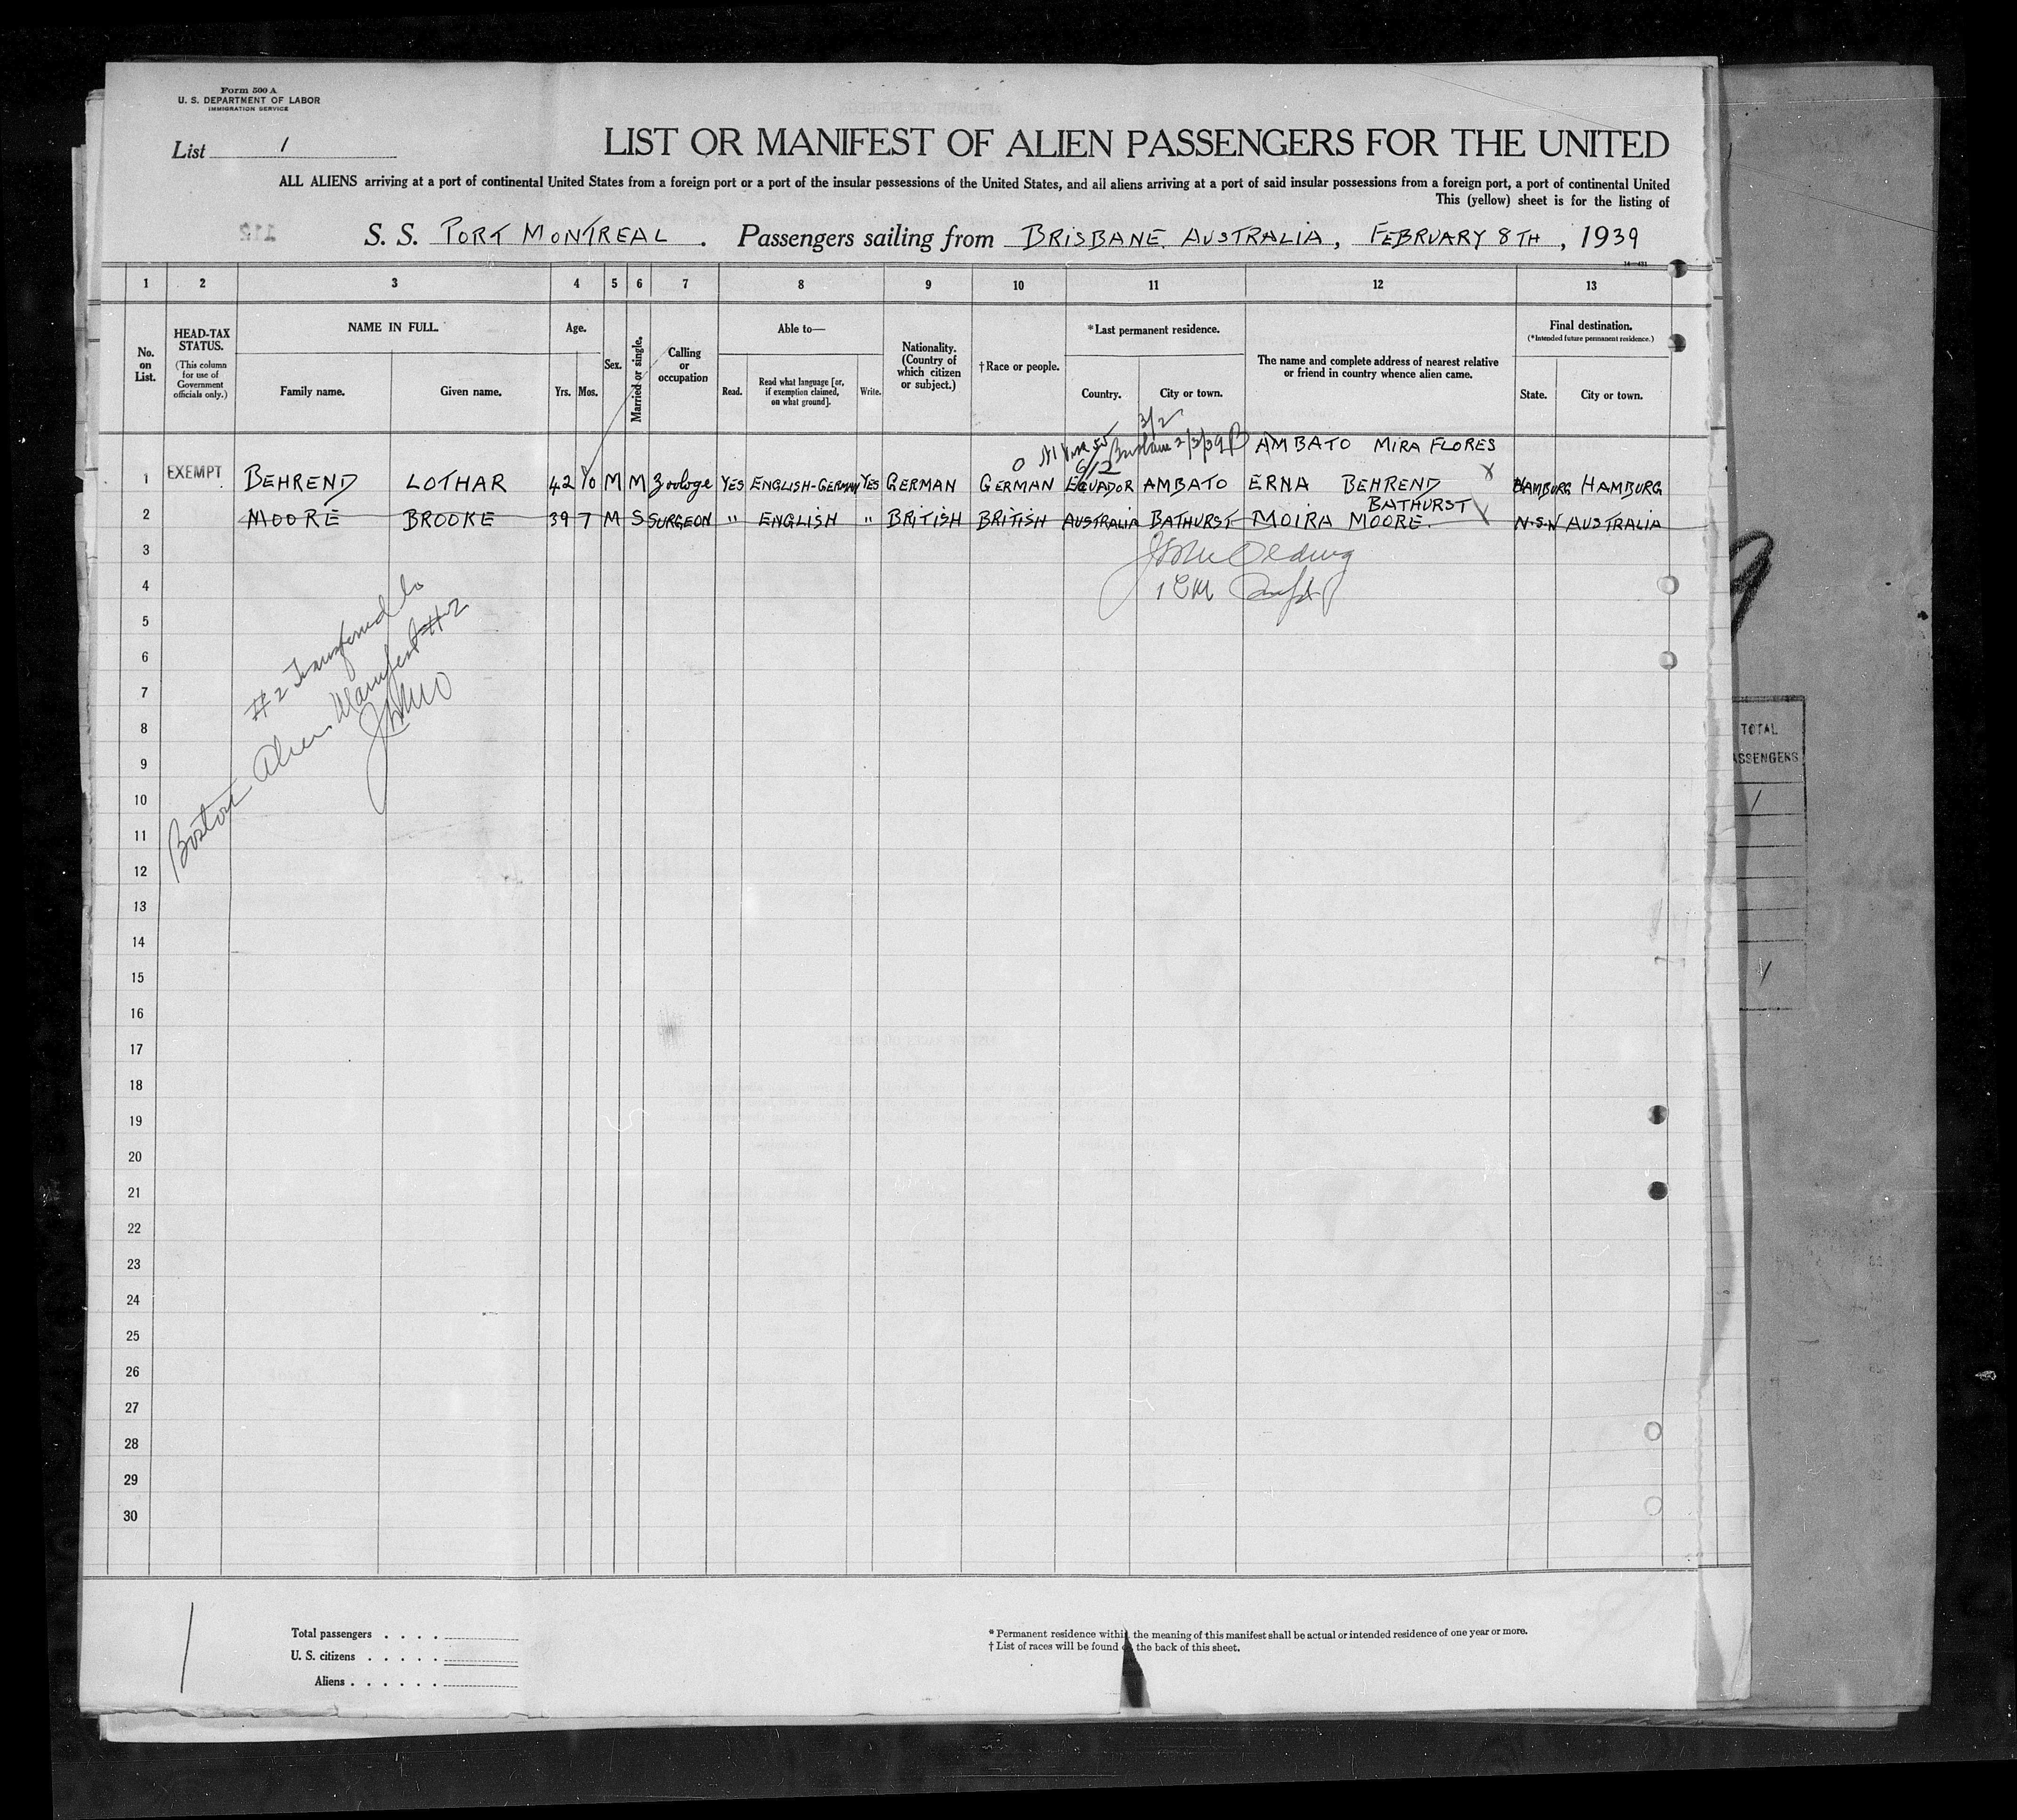 Form 500 A
U. S. DEPARTMENT OF LABOR
IMMIGRATION SERVICE
List 1
LIST OR MANIFEST OF ALIEN PASSENGERS FOR THE UNITED
ALL ALIENS arriving at a port of continental United States from a foreign port or a port of the insular possessions of the United States, and all aliens arriving at a port of said insular possessions from a foreign port, a port of continental United
This (yellow) sheet is for the listing of
S. S. PORT MONTREAL . Passengers sailing from BRISBANE, AUSTRALIA, FEBRUARY 8TH, 1939
1 2 3 4 5 6 7 8 9 10 11 12 13
No. on List.
HEAD-TAX STATUS.
(This column for use of Government officials only.)
NAME IN FULL.
Family name. Given name.
Age.
Yrs. Mos.
Sex.
Married or single.
Calling or occupation
Able to—
Read. Read what language [or, if exemption claimed, on what ground]. Write.
Nationality. (Country of which citizen or subject.)
†Race or people.
*Last permanent residence.
Country. City or town.
The name and complete address of nearest relative or friend in country whence alien came.
Final destination.
(*Intended future permanent residence.)
State. City or town.
3/2
Brisbane 2/3/39
6/2
AMBATO MIRA FLORES
1 EXEMPT BEHREND LOTHAR 42 10 M M Zoologe YES ENGLISH-GERMAN YES GERMAN GERMAN ECUADOR AMBATO ERNA BEHREND X HAMBURG HAMBURG
BATHURST
2 MOORE BROOKE 39 7 M S SURGEON " ENGLISH " BRITISH BRITISH AUSTRALIA BATHURST MOIRA MOORE. N.S.W AUSTRALIA
3
4
5
6
7
8
9
10
11
12
13
14
15
16
17
18
19
20
21
22
23
24
25
26
27
28
29
30
#2 Transferred to
Boston Alien Manifest #2
TOTAL
Total passengers . . . .
U. S. citizens . . . . .
Aliens . . . . . .
* Permanent residence within the meaning of this manifest shall be actual or intended residence of one year or more.
† List of races will be found the back of this sheet.